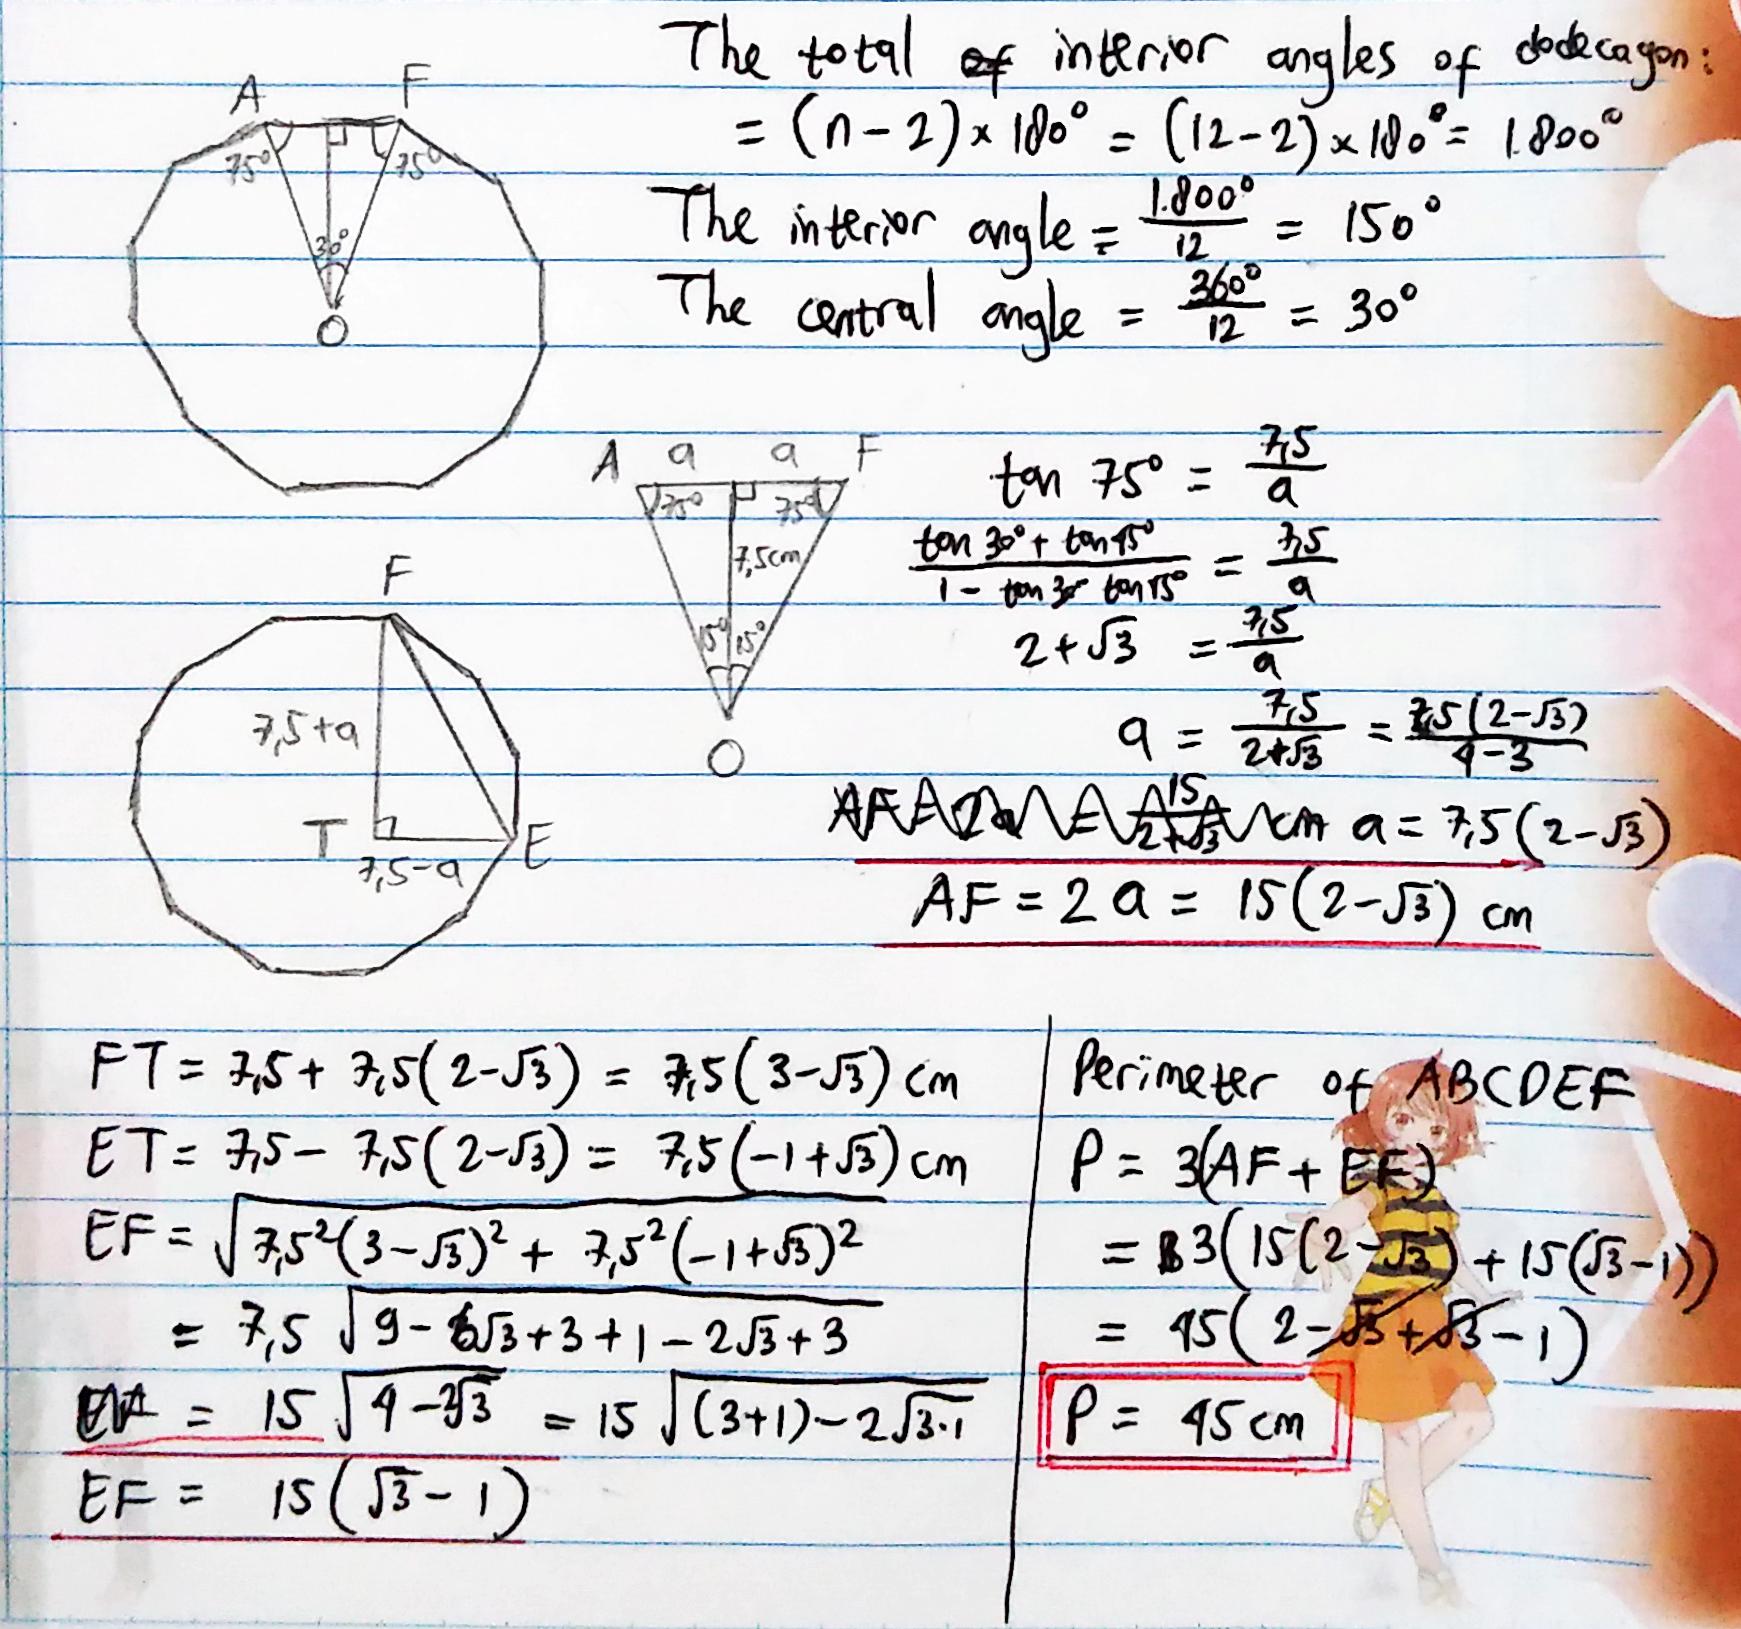 The total of interior angles of dodecagon:
= (n - 2) × 180° = (12 - 2) × 180° = 1.800°
The interior angle = 1.800°/12 = 150°
The central angle = 360°/12 = 30°
A F
75° 75°
30°
O
A a a F
75° 75°
7,5cm
15° 15°
O
tan 75° = 7,5/a
(tan 30° + tan 45°)/(1 - tan 30° tan 45°) = 7,5/a
2 + √3 = 7,5/a
a = 7,5/(2+√3) = 7,5(2-√3)/(4-3)
a = 7,5(2-√3)
AF = 2a = 15(2-√3) cm
F
7,5+a
T E
7,5-a
FT = 7,5 + 7,5(2-√3) = 7,5(3-√3) cm
ET = 7,5 - 7,5(2-√3) = 7,5(-1+√3) cm
EF = √(7,5²(3-√3)² + 7,5²(-1+√3)²)
= 7,5 √(9 - 6√3 + 3 + 1 - 2√3 + 3)
= 15 √(4 - 2√3) = 15 √((3+1) - 2√3·1)
EF = 15(√3 - 1)
Perimeter of ABCDEF
P = 3(AF + EF)
= 3(15(2-√3) + 15(√3-1))
= 45(2-√3+√3-1)
P = 45 cm